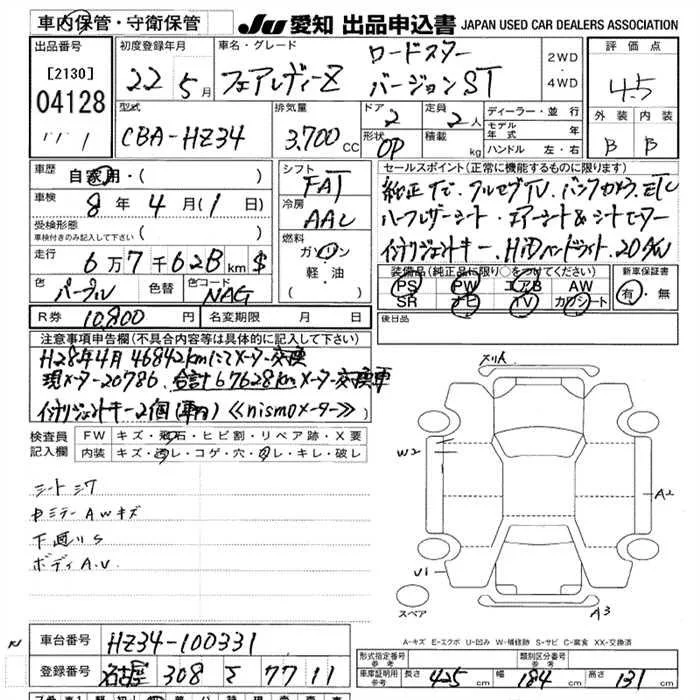 車内保管・守衛保管 JU 愛知 出品申込書 JAPAN USED CAR DEALERS ASSOCIATION
出品番号 初度登録年月 車名・グレード ロードスター 2WD 評価点
[2130] 22年5月 フェアレディーZ バージョンST ・ 4.5
04128 4WD
型式 排気量 ドア 2 定員 2人 ディーラー・並行 外装 内装
11/1 CBA-HZ34 3.700cc 形状 OP 積載 kg モデル年式 年 B B
ハンドル 左・右
車歴 自家用・( ) シフト FAT セールスポイント(正常に機能するものに限ります)
車検 8年4月(1日) 冷房 AAC 純正ナビ・フルセグTV・バックカメラ・ETC
受検形態 車検付きのみ記入して下さい ( ) 燃料 ハーフレザーシート・エアーシート&シートヒーター
走行 6万7千628km $ ガソリン インテリジェントキー・HIDヘッドライト・20AW
軽・油 装備品(純正品に限り○をつけてください) 新車保証書
色 パープル 色替 色コード NAG ( ) PS PW エアB AW 有・無
SR ナビ TV カワシート
R券 10,800円 名変期限 月 日 後日品
注意事項申告欄(不具合内容等は具体的に記入して下さい)
H28年4月 46842kmにてメーター交換
現メーター20786. 合計67628kmメーター交換車
インテリジェントキー2個(車内)≪nismoメーター≫
検査員記入欄 FW キズ・飛石・ヒビ割・リペア跡・X要
内装 キズ・スレ・コゲ・穴・汚レ・キレ・破レ
シートシワ
ミラー AWキズ
下廻りS
ボディA.U
W2
A2
U1
スペア
A3
A-キズ E-エクボ U-凹み W-補修跡 S-サビ C-腐食 XX-交換済
車台番号 HZ34-100331
形式指定番号 参考 類別区分番号 参考
登録番号 名古屋 308 77 11
車庫証明用 参考 長さ 425cm 幅 184cm 高さ 131cm